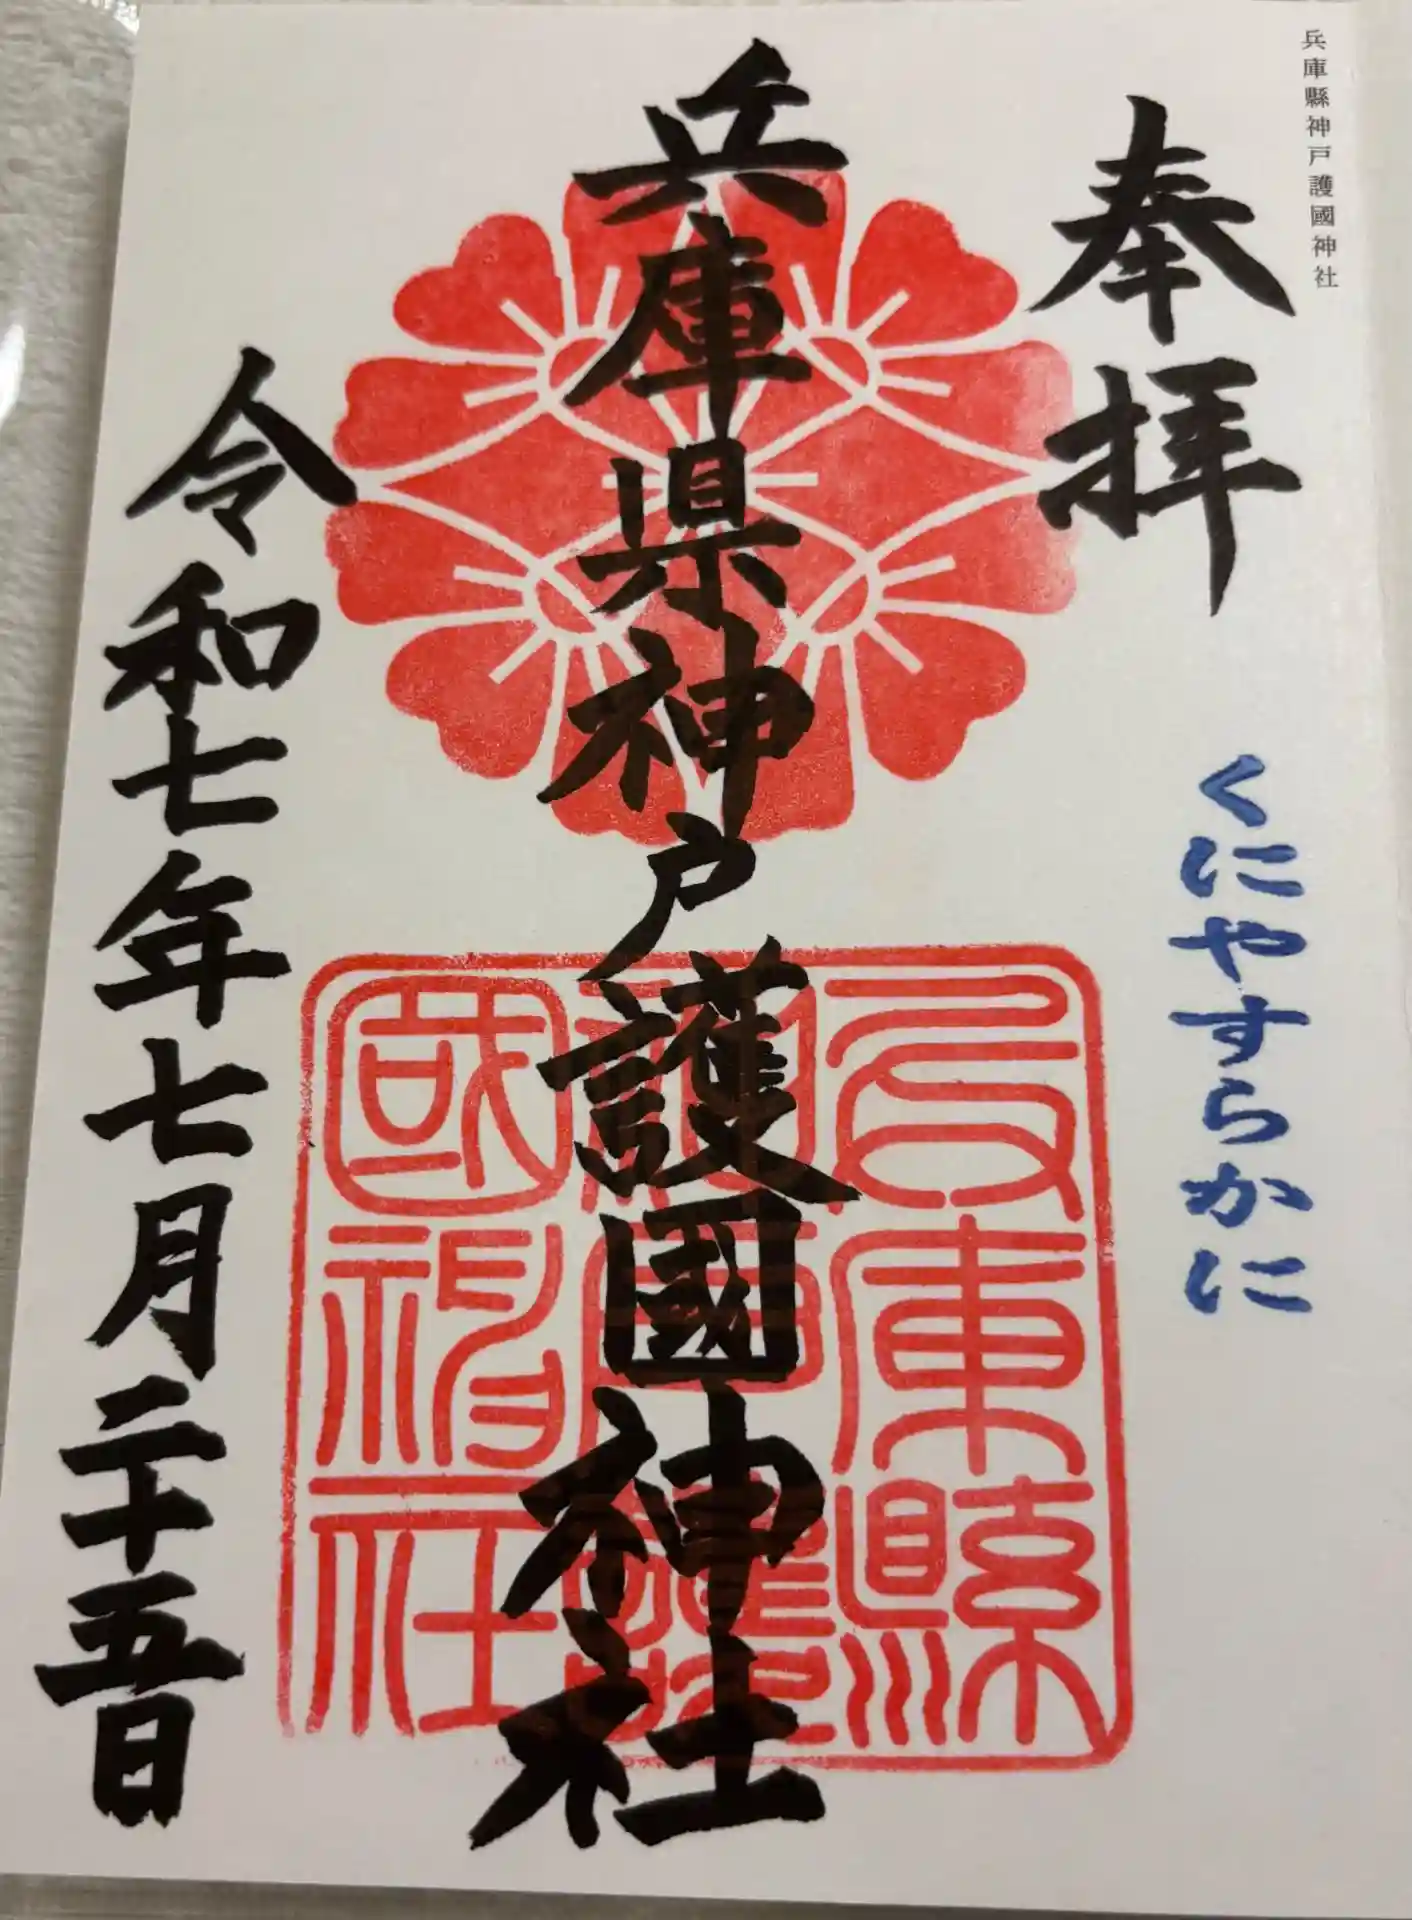 兵庫縣神戸護國神社
奉拝
くにやすらかに
兵庫県神戸護國神社
兵庫縣神戸護國神社
令和七年七月二十五日